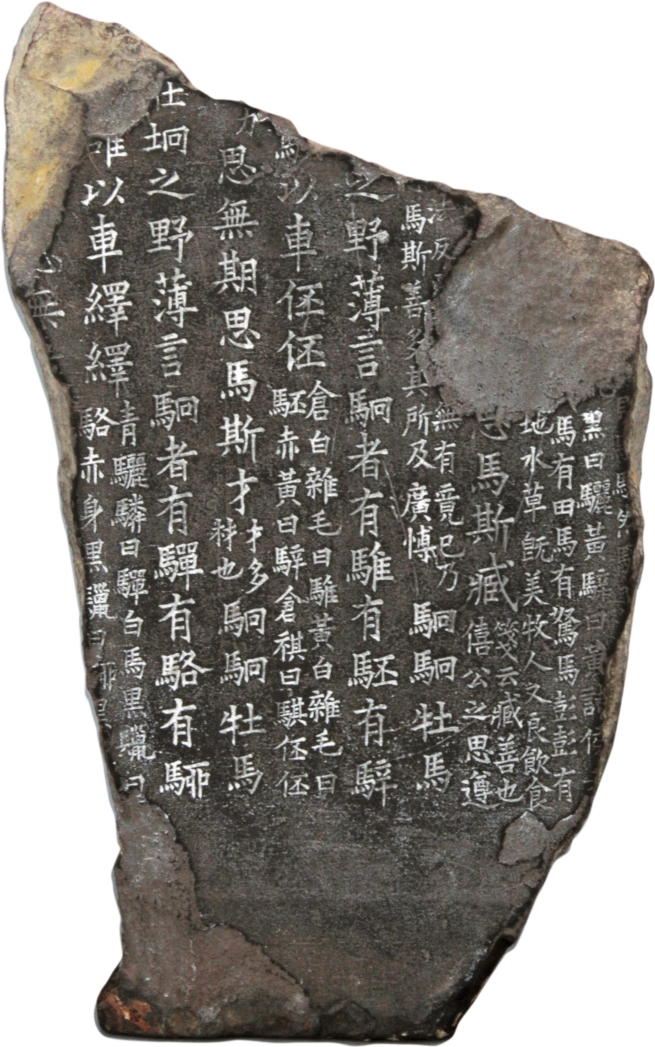 黑曰驪黃騂曰黃諸侯
馬有田馬有駑馬彭彭有
地水草既美牧人又良飲食
思馬斯臧
箋云臧善也
僖公之思遵
法反
無有竟已乃
馬斯善多其所及廣愽
駉駉牡馬
之野薄言駉者有騅有駓有騂
以車伾伾
倉白雜毛曰騅黃白雜毛曰
駓赤黃曰騂倉祺曰騏伾伾
思無期思馬斯才
才多
材也
駉駉牡馬
在坰之野薄言駉者有驒有駱有駵
以車繹繹
青驪驎曰驒白馬黑鬣曰
駱赤身黑鬣曰駵黑
無